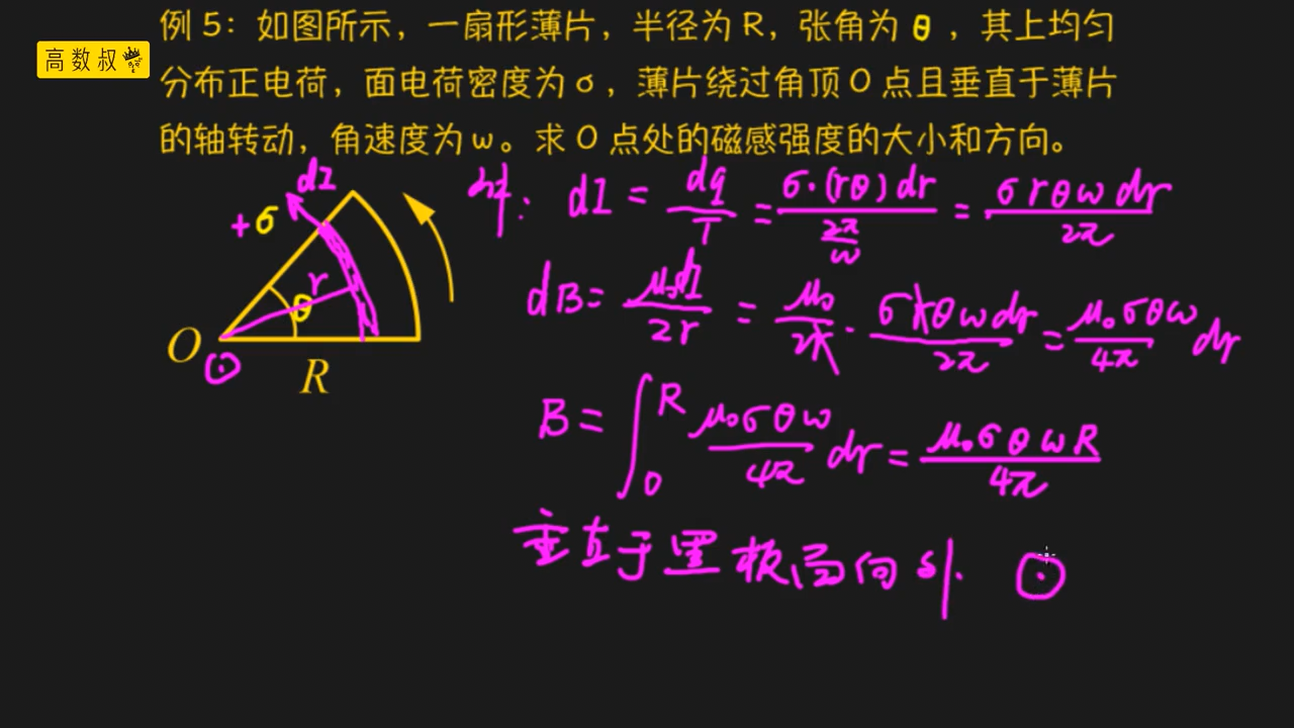 例 5：如图所示，一扇形薄片，半径为 R，张角为 θ，其上均匀
高数叔
分布正电荷，面电荷密度为 σ，薄片绕过角顶 O 点且垂直于薄片
的轴转动，角速度为 ω。求 O 点处的磁感强度的大小和方向。
dI
+σ
r
θ
O
⊙
R
解：dI = dq/T = σ·(rθ)dr/(2π/ω) = σrθωdr/2π
dB = μ₀dI/2r = μ₀/2r · σrθωdr/2π = μ₀σθω/4π dr
B = ∫₀ᴿ μ₀σθω/4π dr = μ₀σθωR/4π
垂直于黑板面向外. ⊙